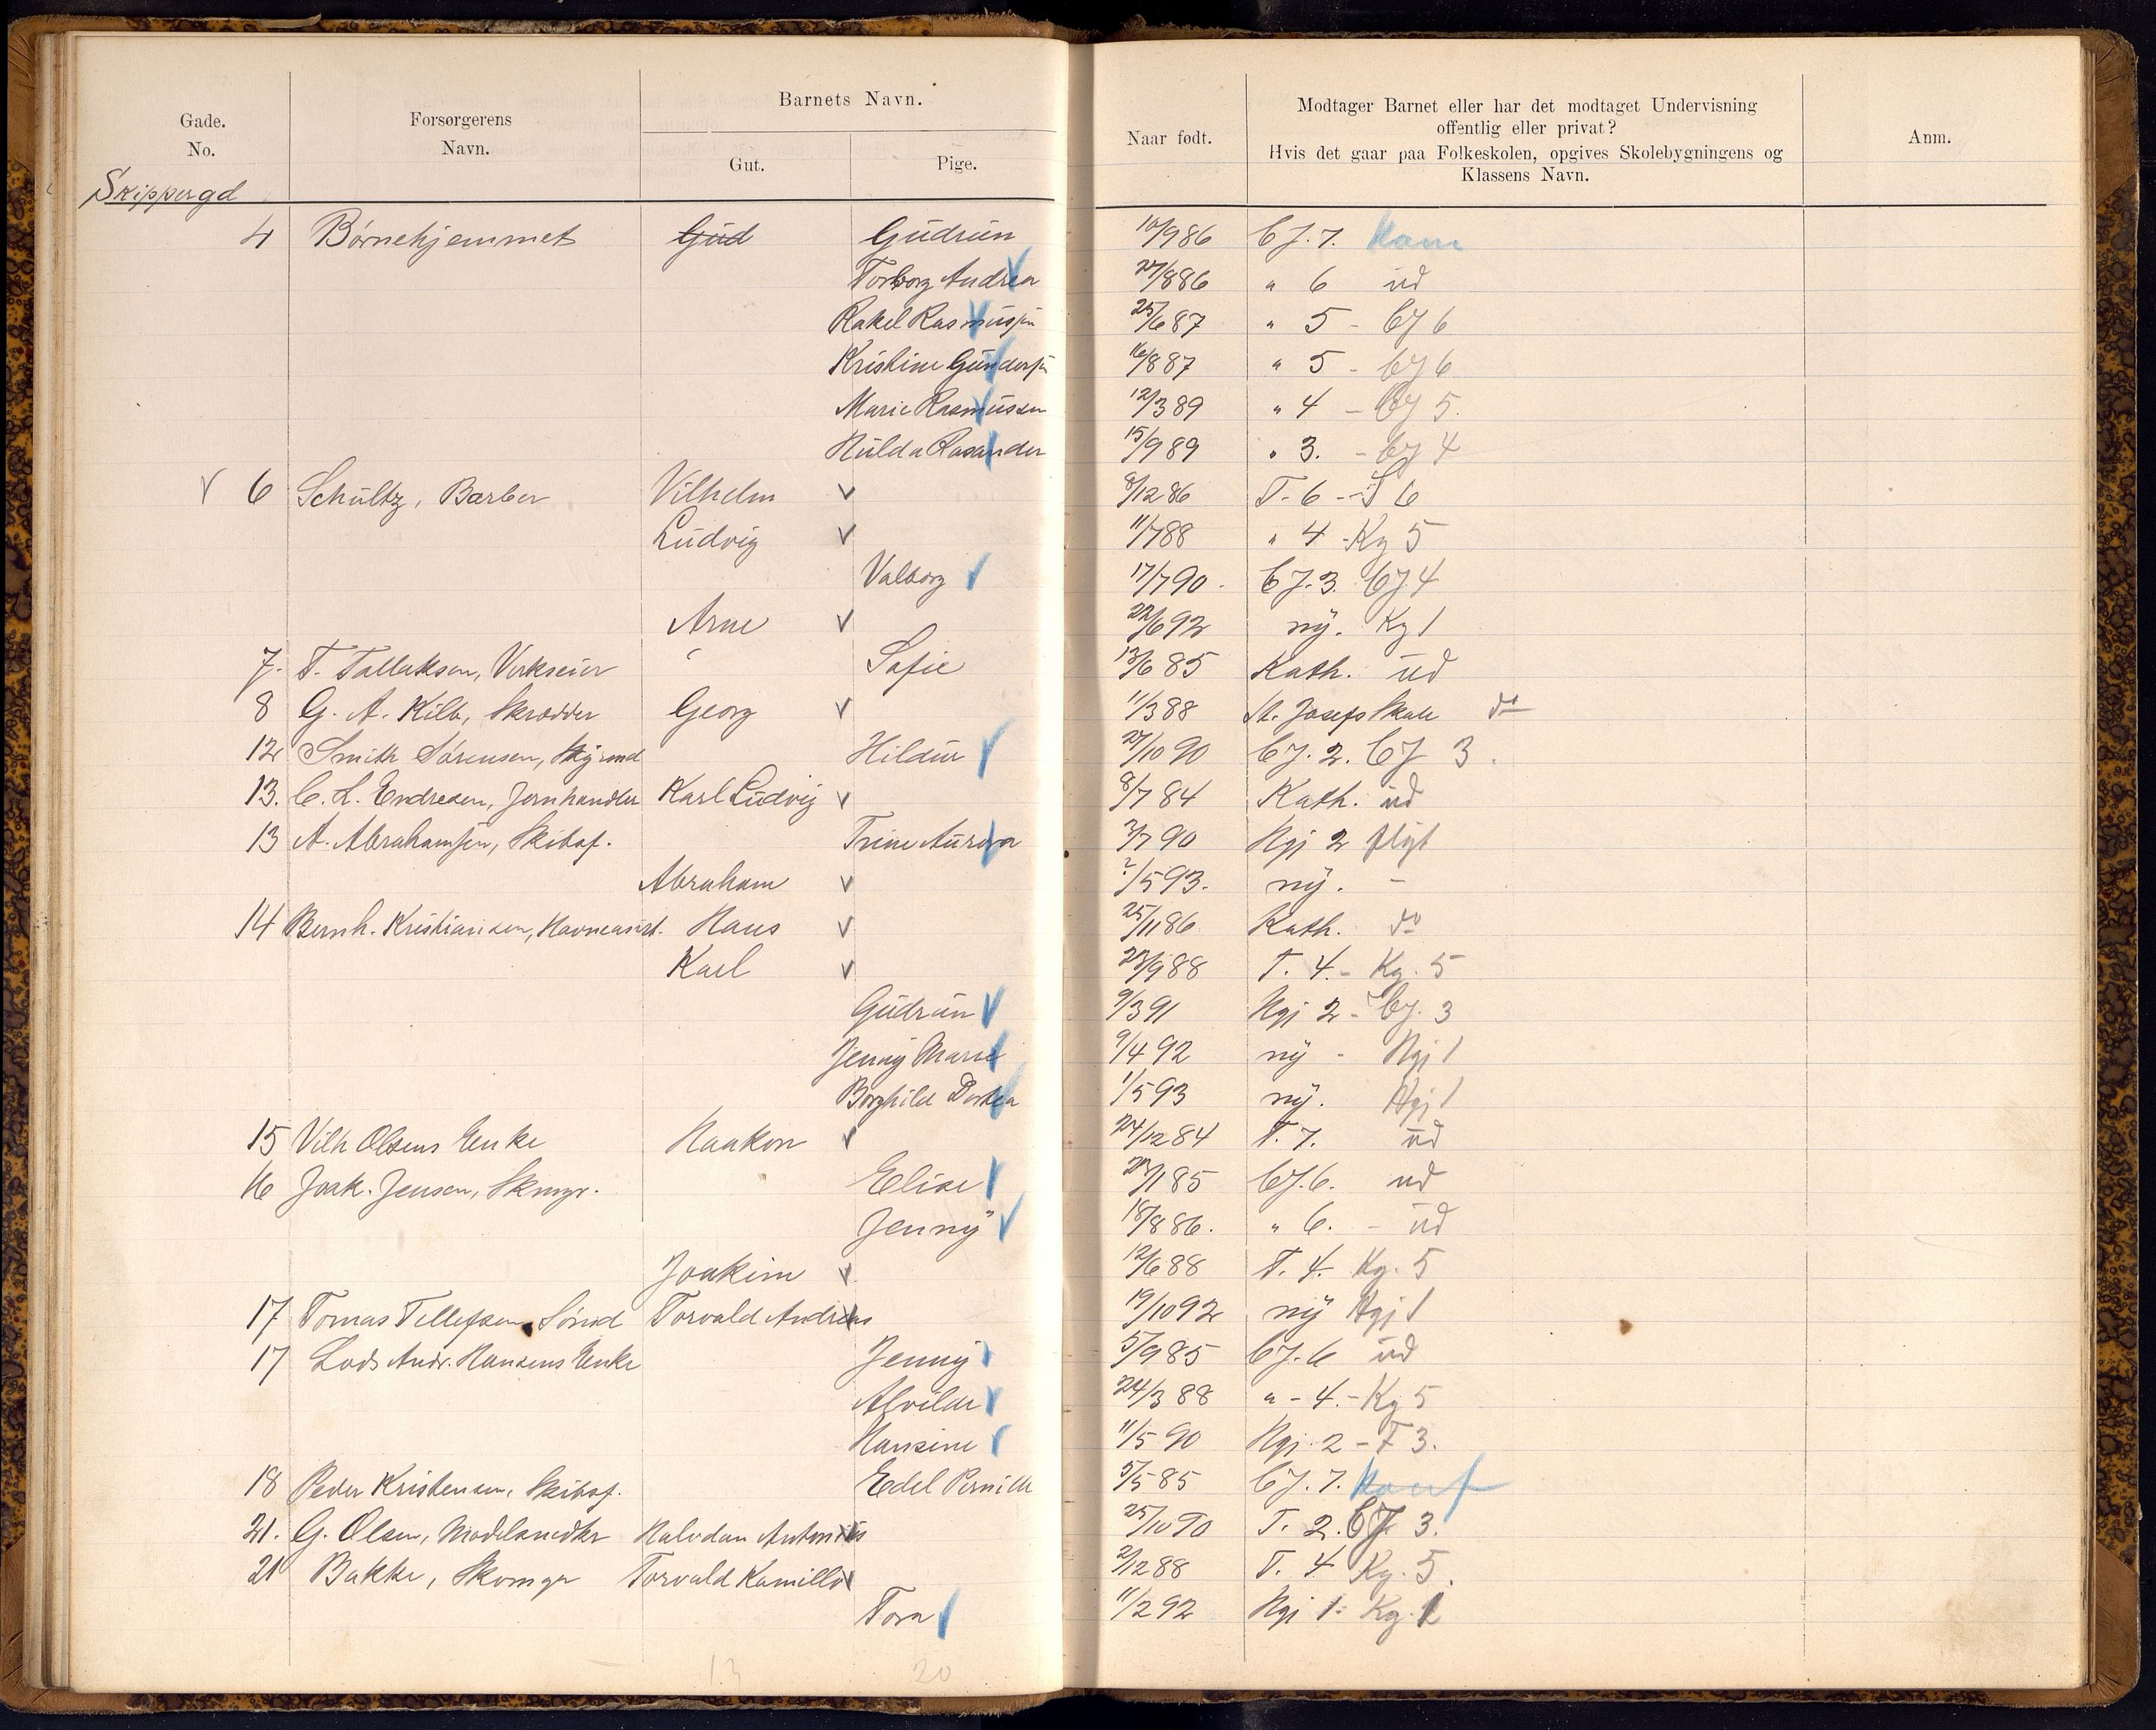 Gade.
No.
Forsørgerens
Navn.
Barnets Navn.
Gut.
Pige.
Naar født.
Modtager Barnet eller har det modtaget Undervisning
offentlig eller privat?
Hvis det gaar paa Folkeskolen, opgives Skolebygningens og
Klassens Navn.
Anm.
Skippergd
4 Børnehjemmet Gud Gudrun 10/9 86 CJ. 7.
Torborg Andrea 27/8 86 " 6 ud
Rakel Rasmussen 25/6 87 " 5 - CJ 6
Kristine Gundersen 16/8 87 " 5 - CJ 6
Marie Rasmussen 12/3 89 " 4 - CJ 5.
Hulda Rasander 15/9 89 " 3. - CJ 4
6 Schultz, Barber Vilhelm 8/12 86 T. 6 - T 6
Ludvig 11/7 88 " 4 - Kg 5
Valborg 17/7 90. CJ. 3. CJ 4
Arne 22/6 92 ny. Kg 1
7. T. Tallaksen, Verkseier " Sofie 13/6 85 Kath. ud
8 G. A. Kilb, Skrædder Georg 11/3 88 St. Josefs Skole do
12 Smith Sørensen, Hildur 27/10 90 CJ. 2. CJ 3.
13. C. L. Endresen, Jernhandler Karl Ludvig 8/7 84 Kath. ud
13 A. Abrahamsen, Skibsf. Trine Aurora 3/7 90 Ngj 2 flyt
Abraham ?/5 93. ny. -
14 Bernh. Kristiansen, Havneasist. Hans 25/11 86 Kath. do
Karl 23/9 88 T. 4. - Kg. 5
Gudrun 9/3 91 Ngj 2 - CJ. 3
Jenny Marie 9/4 92 ny - Ngj 1
Borghild Dorthea 1/5 93 ny. Ngj 1
15 Vilh Olsens Enke Haakon 24/12 84 T. 7. ud
16 Joak. Jensen, Skmgr. Elise 29/1 85 CJ. 6. ud
Jenny 18/8 86. " 6. - ud
Joakim 12/6 88 T. 4. Kg. 5
17 Tomas Tellefsen, Sømd Torvald Andreas 19/10 92 ny Ngj 1
17 Lods Andr. Hansens Enke Jenny 5/9 85 CJ. 6 ud
Alvilde 24/3 88 " - 4. - Kg 5
Hansine 11/5 90 Ngj. 2 - T 3.
18 Peder Kristensen, Skibsf. Edel Pernille 5/5 85 CJ. 7. Konf
21. G. Olsen, Halvdan Antonius 25/10 90 T. 2. CJ 3.
21 Bakke, Skomgr Torvald Kamillo 2/12 88 T. 4 Kg. 5.
Tora 11/2 92 Ngj 1. Kg. 2
13 20